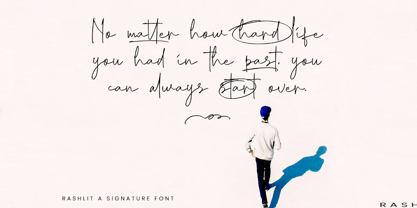 No matter how hard life
you had in the past. you
can always start over.
RASHLIT A SIGNATURE FONT
RASH